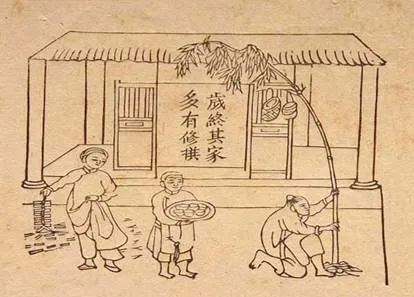 歲終其家
多有修祺